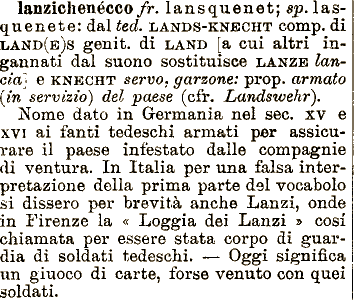 lanzichenécco fr. lansquenet; sp. las-
quenete: dal ted. LANDS-KNECHT comp. di
LAND(E)S genit. di LAND [a cui altri in-
gannati dal suono sostituisce LANZE lan-
cia] e KNECHT servo, garzone: prop. armato
(in servizio) del paese (cfr. Landswehr).
Nome dato in Germania nel sec. XV e
XVI ai fanti tedeschi armati per assicu-
rare il paese infestato dalle compagnie
di ventura. In Italia per una falsa inter-
pretazione della prima parte del vocabolo
si dissero per brevità anche Lanzi, onde
in Firenze la « Loggia dei Lanzi » cosí
chiamata per essere stata corpo di guar-
dia di soldati tedeschi. — Oggi significa
un giuoco di carte, forse venuto con quei
soldati.